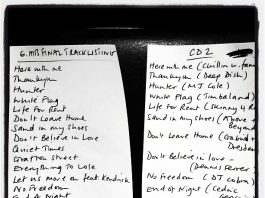 G. HITS FINAL TRACKLISTING
Here with me
Thankyou
Hunter
White Flag
Life For Rent
Don't Leave Home
Sand in my Shoes
Don't Believe in Love
Quiet Times
Grafton Street
Everything To Lose
Let us move on feat Kendrick
No Freedom
End of Night
CD 2
Here with me (Chillin w. fam
Thankyou (Deep Dish)
Hunter (MJ Cole)
White Flag (Timbaland)
Life For Rent (Skinny 4 Ri
Sand in my Shoes (Above +
Beyond
Don't Leave Home (Gabriel +
Dresden
Don't Believe in love -
(Dennis Ferrer
No Freedom (DJ Cobra)
End of Night (Cedric